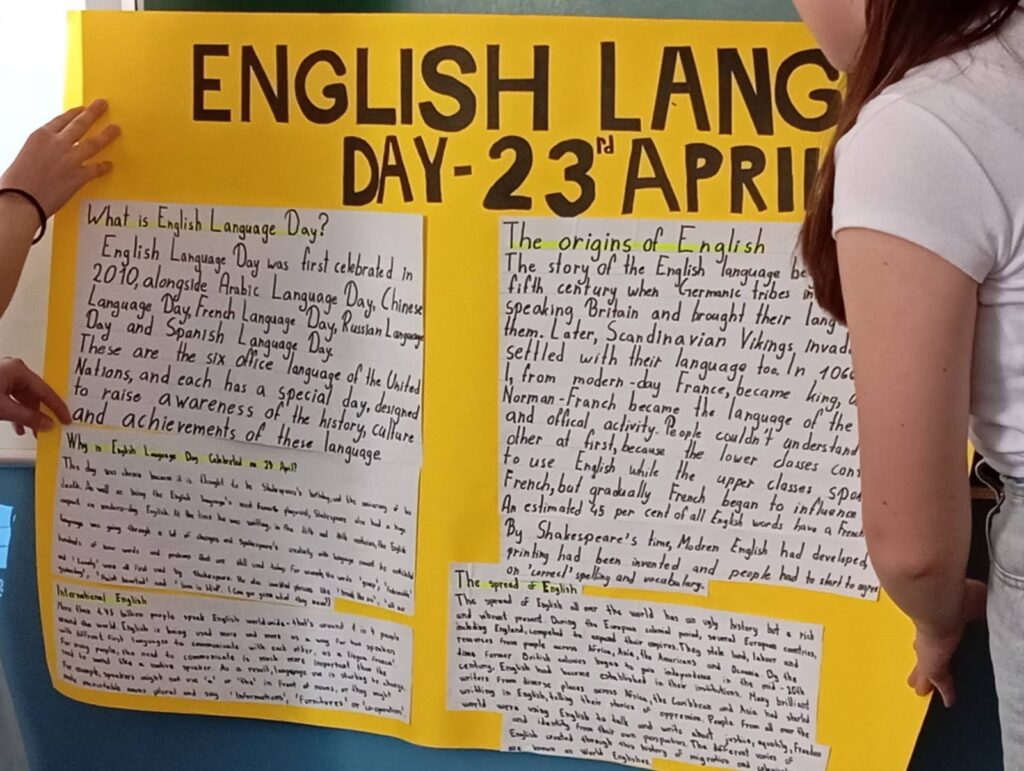 ENGLISH LANG
DAY - 23rd APRI
What is English Language Day?
English Language Day was first celebrated in
2010, alongside Arabic Language Day, Chinese
Language Day, French Language Day, Russian Language
Day and Spanish Language Day.
These are the six office language of the United
Nations, and each has a special day, designed
to raise awareness of the history, culture
and achievements of these language
Why is English Language Day Celebrated on 23 April?
This day was chosen because it is thought to be Shakespeare's birthday, and the anniversary of his
death. As well as being the English language's most famous playwright, Shakespeare also had a huge
impact on modern-day English. At the time he was writing, in the 16th and 17th centuries, the English
language was going through a lot of changes and Shakespeare's creativity with language meant he contributed
hundreds of new words and phrases that are still used today. For example, the words 'gossip', 'fashionable'
and 'Lonely' were all first used by Shakespeare. He also invented phrases like 'break the ice', 'all our
yesterdays', 'faint hearted' and 'love is blind'. (Can you guess what they mean?)
International English
More than 1.75 billion people speak English worldwide - that's around 1 in 4 people
around the world. English is being used more and more as a way for two speakers
with different first languages to communicate with each other, as a 'lingua franca'.
For many people, the need to communicate is much more important than the
need to sound like a native speaker. As a result, language use is starting to change.
For example, speakers might not use 'a' or 'the' in front of nouns, or they might
make uncountable nouns plural and say 'informations', 'furnitures' or 'co-operations'
The origins of English
The story of the English language be
fifth century when Germanic tribes in
speaking Britain and brought their lang
them. Later, Scandinavian Vikings invad
settled with their language too. In 106
I, from modern-day France, became king, a
Norman-Franch became the language of the
and offical activity. People couldn't understand
other at first, because the lower classes con
to use English while the upper classes spo
French, but gradually French began to influence
An estimated 45 per cent of all English words have a French
By Shakespeare's time, Modren English had developed,
printing had been invented and people had to start to agree
on 'correct' spelling and vocabulary.
The spread of English
The spread of English all over the world has an ugly history but a rich
and vibrant present. During the European colonial period, several European countries,
including England, competed to expand their empires. They stole land, labour and
resources from people across Africa, Asia, the Americans and Oceania. By the
time former British colonies began to gain independence in the mid-20th
century, English had become established in their institutions. Many brilliant
writers from diverse places across Africa, the Caribbean and Asia had started
writting in English, telling their stories of oppression. People from all over the
world were using English to talk and write about justice, equality, freedom
and identity from their own perspectives. The different varieties of
English created through this history of migration and
are known as World Englishes.